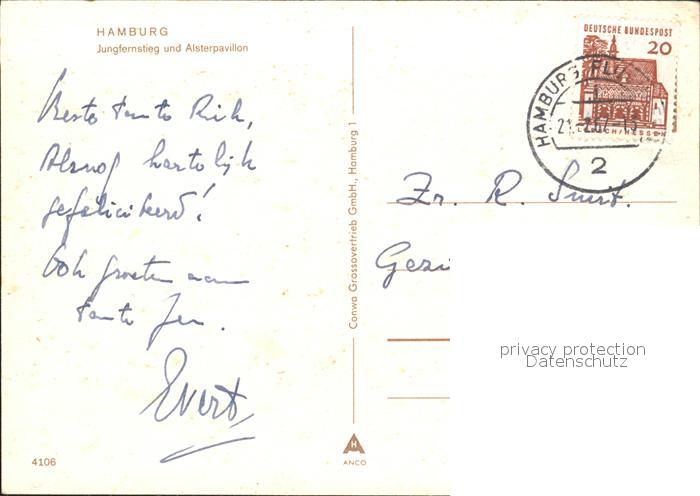 HAMBURG
Jungfernstieg und Alsterpavillon
Beste tante Rik,
Alsnog hartelijk
gefeliciteerd!
Ook groeten aan
tante Jen.
Evert
4106
Conwa Grossovertrieb GmbH., Hamburg 1
H
ANCO
DEUTSCHE BUNDESPOST
20
HAMBURG
2
Zr. R. Smit.
privacy protection
Datenschutz